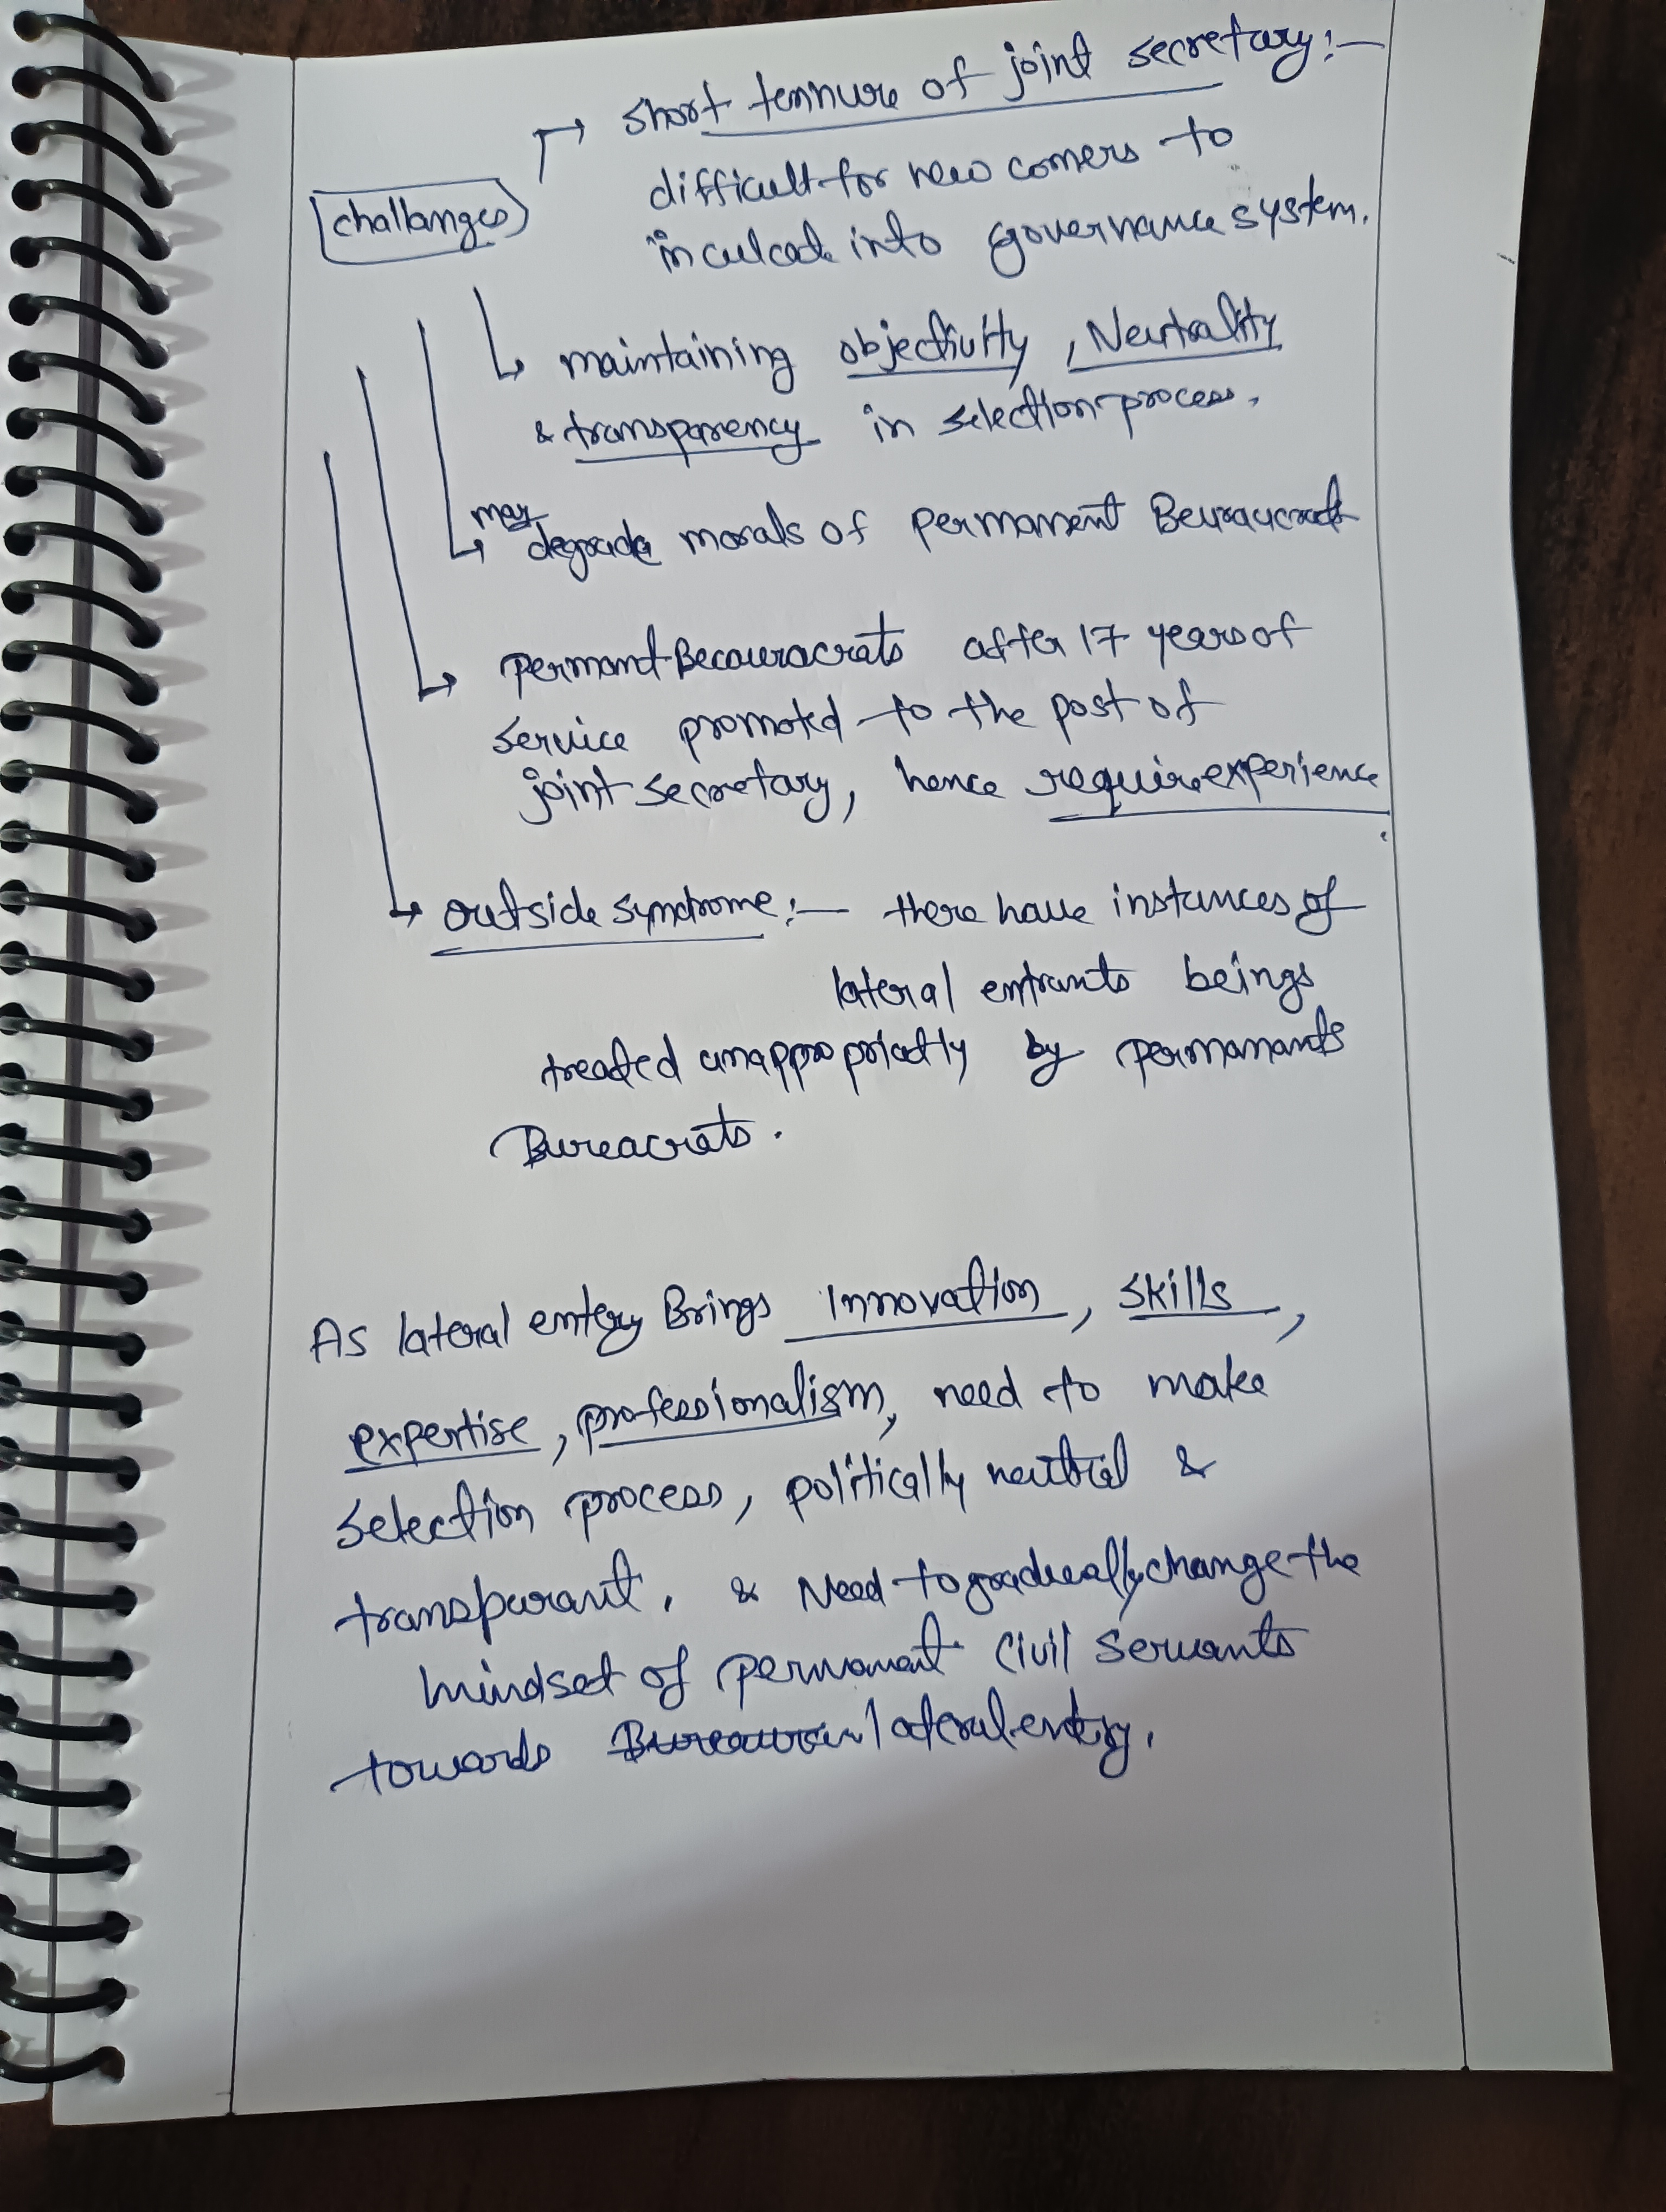 short tennure of joint secretary:-
difficult for new comers to
[challanges]
inculcate into governance system.
maintaining objectivity, Neutrality
& transparency in selection process.
may
degrade morals of permanent Beuraucrats
permant Becauracrats after 17 years of
service promoted to the post of
joint secretary, hence require experience.
outside syndrome:- there have instances of
lateral entrants beings
treated unappropriatly by permanants
Bureacrats.
As lateral entery Brings Innovation, skills,
expertise, professionalism, need to make
selection process, politically neutral &
transparant. & Need to gradually change the
mindset of permanent civil servants
towards lateral entry.